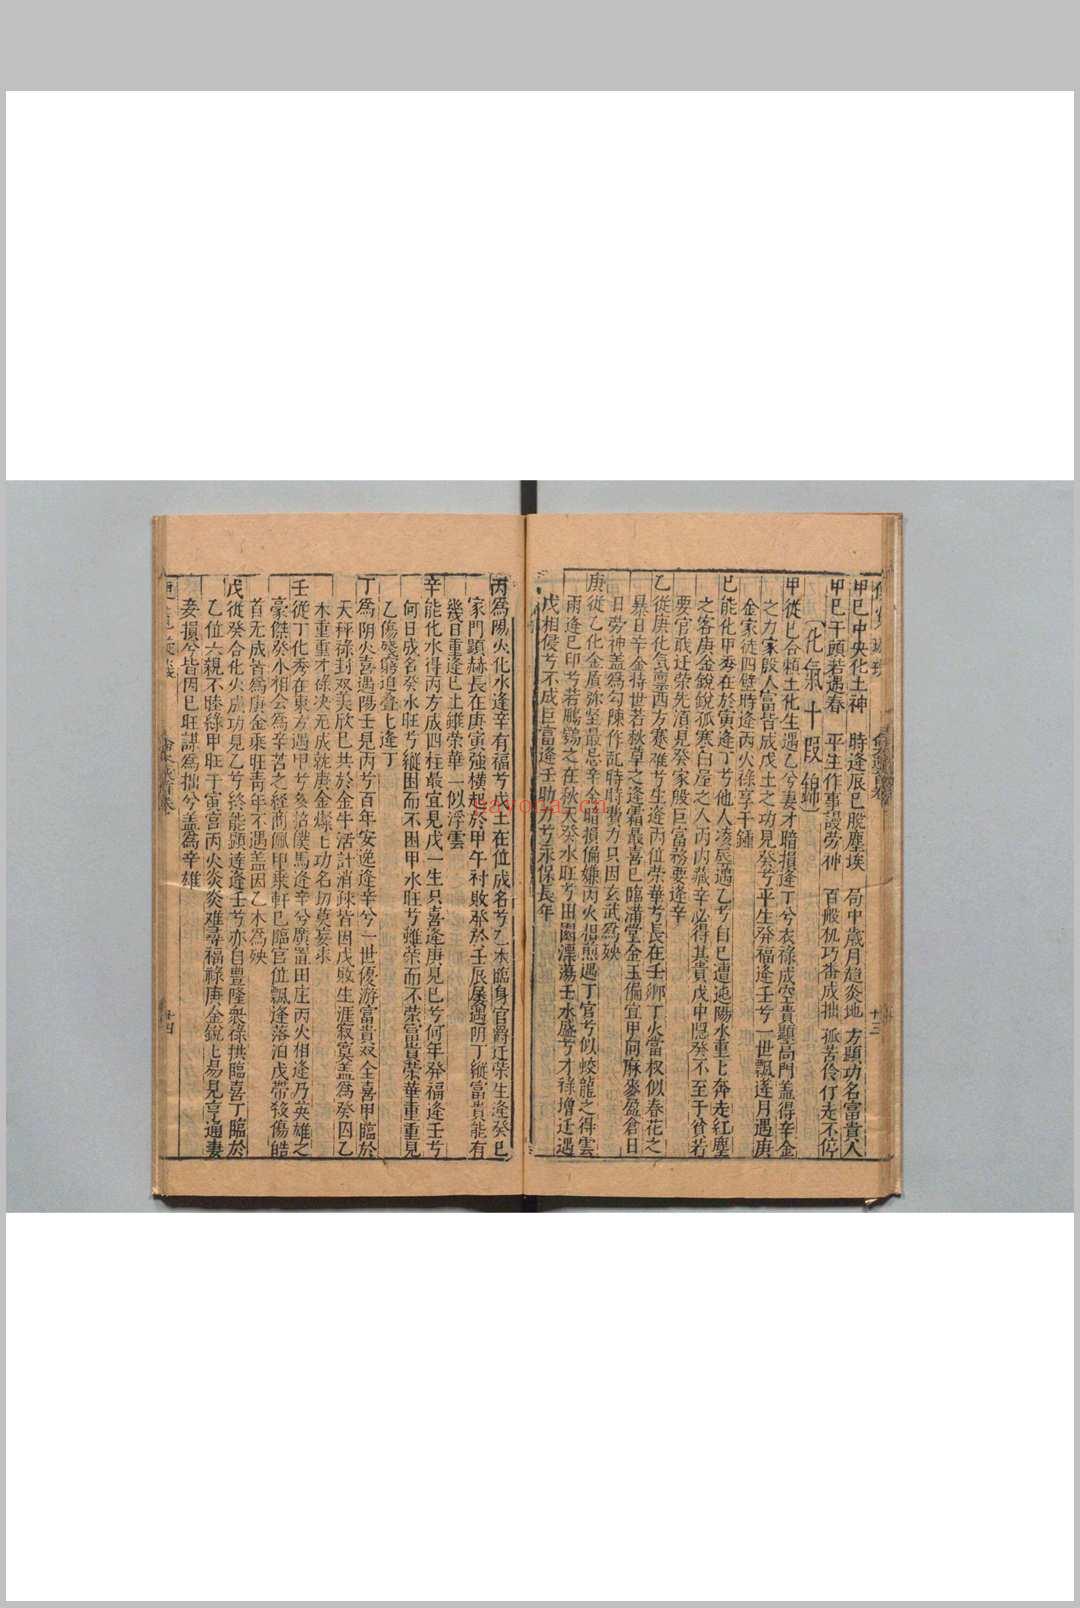 甲巳中央化土神　時逢辰巳脫塵埃　局中歲月趨炎地　方顯功名富貴人
甲巳干頭若遇春　平生作事謾勞神　百般机巧番成拙　孤苦伶仃走不停
化氣十段錦
甲從巳合頼土化生遇乙兮妻才暗損逢丁兮衣祿成空貴顯高門盖得辛金
之力家殷人富皆成戊土之功見癸兮平生發福逢壬兮一世飄逢月遇庚
金家徒四壁時逢丙火祿享千鍾
巳能化甲秀在於寅逢丁兮他人凌辱遇乙兮自巳遭迍陽水重上奔走紅塵
之客庚金銳銳孤寒白屋之人丙内藏辛必得其貴戊中隱癸不至于貧若
要官戢迁荣先湏見癸家殷巨富務要逢辛
乙從庚化氣禀西方蹇难兮生逢丙位荣華兮長在壬鄉丁火當权似春花之
暴日辛金持世若秋草之逢霜最喜巳臨滿堂金玉偏宜甲向麻麥盈倉日
日勞神盖爲勾陳作乱時時費力只因玄武爲殃
庚從乙化金质弥坚最忌辛金暗損偏嫌丙火相煎遇丁官兮似蛟龍之得雲
雨逢巳印兮若鵬鶚之在秋天癸水旺兮田園漂蕩壬水盛兮才祿增迁遇
戊相侵兮不成巨富逢壬助力兮永保長年
十三
丙爲陽火化水逢辛有福兮戊土在位成名兮乙木臨身官爵迁荣生逢癸巳
家門顕赫長在庚寅強横起於甲午衬敗發於壬辰屡遇阴丁縱富貴能有
幾日重逢巳土縱荣華一似浮雲
辛能化水得丙方成四柱最宜見戊一生只喜逢庚見巳兮何年發福逢壬兮
何日成名癸水旺兮縱困而不困甲水旺兮雖荣而不荣富貴荣華重重見
乙傷殘窮迫叠上逢丁
丁爲阴火喜遇陽壬見丙兮百年安逸逢辛兮一世優游富貴双全喜甲臨於
天秤祿封双美欣巳共於金牛活計消疎皆因戊敗生涯寂寞盖爲癸囚乙
木重重才祿决无成就庚金燦上功名切莫妄求
壬從丁化秀在東方遇甲兮㚑招僕馬逢辛兮廣置田庄丙火相逢乃英雄之
豪傑癸水相会爲辛苦之経商佩甲乘軒巳臨官位飄逢落泊戊帶殺傷皓
首无成皆爲庚金乘旺青年不遇盖因乙木爲殃
戊從癸合化火成功見乙兮終能顕達逢壬兮亦自豊隆衆祿拱臨喜丁臨於
乙位六親不睦緣甲旺于寅宮丙火炎炎难尋福祿庚金銳上易見亨通妻
妾損兮皆因巳旺謀爲拙兮盖爲辛雄
十四
nayona.cn